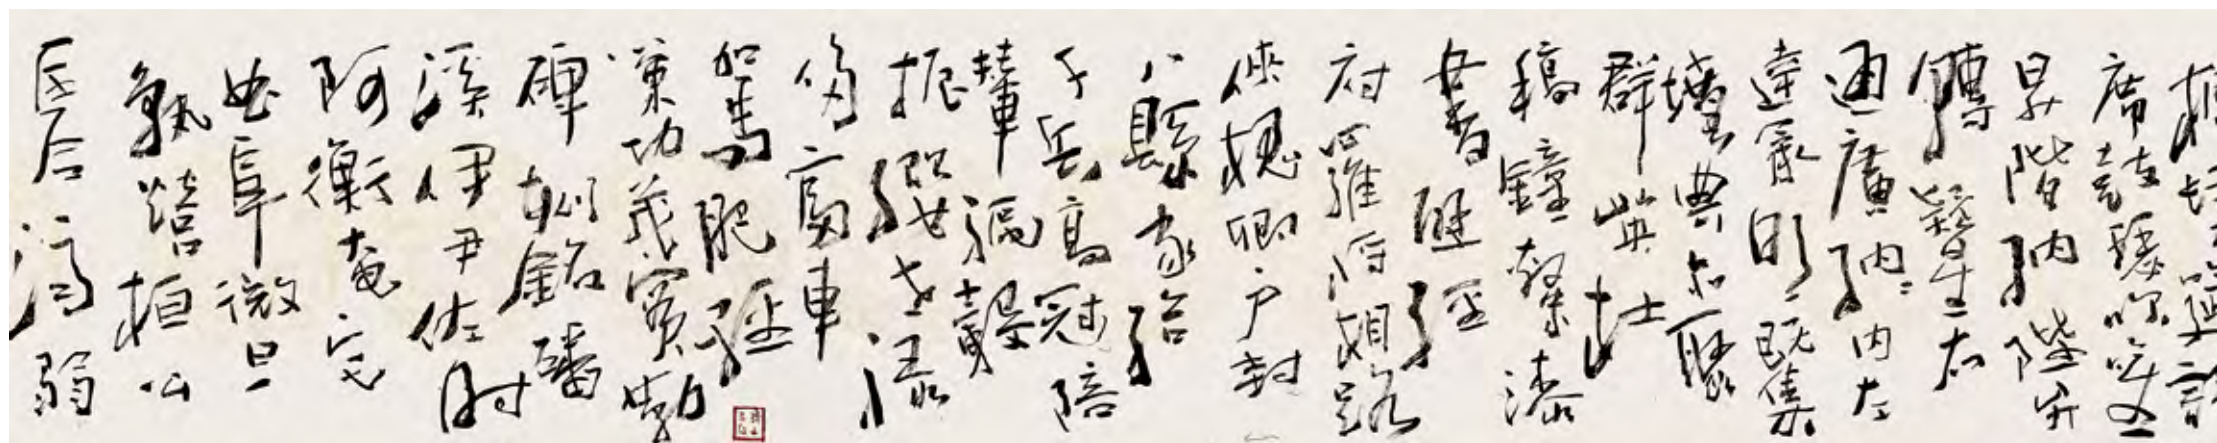 席鼓瑟吹笙
昇階納陛弁
轉疑星右
通廣納内左
達承明既集
墳典亦聚
群英杜
稿鍾隸漆
書壁經
府羅將相路
俠槐卿戶封
八縣家給
千兵高冠陪
輦驅轂
振纓世祿
侈富車
駕肥輕
策功茂實勒
碑刻銘磻
溪伊尹佐時
阿衡奄宅
曲阜微旦
孰營桓公
匡合濟弱